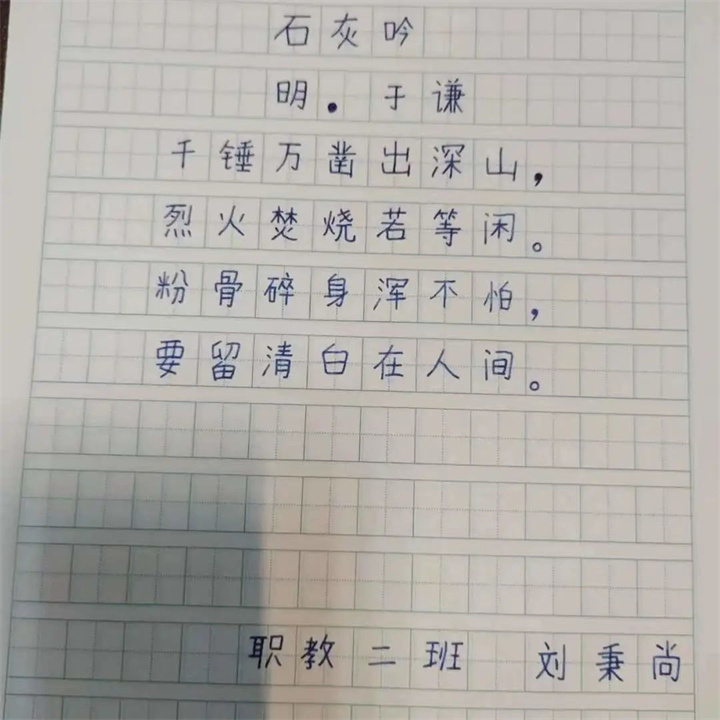 石灰吟
明。于谦
千锤万凿出深山，
烈火焚烧若等闲。
粉骨碎身浑不怕，
要留清白在人间。
职教二班 刘秉尚